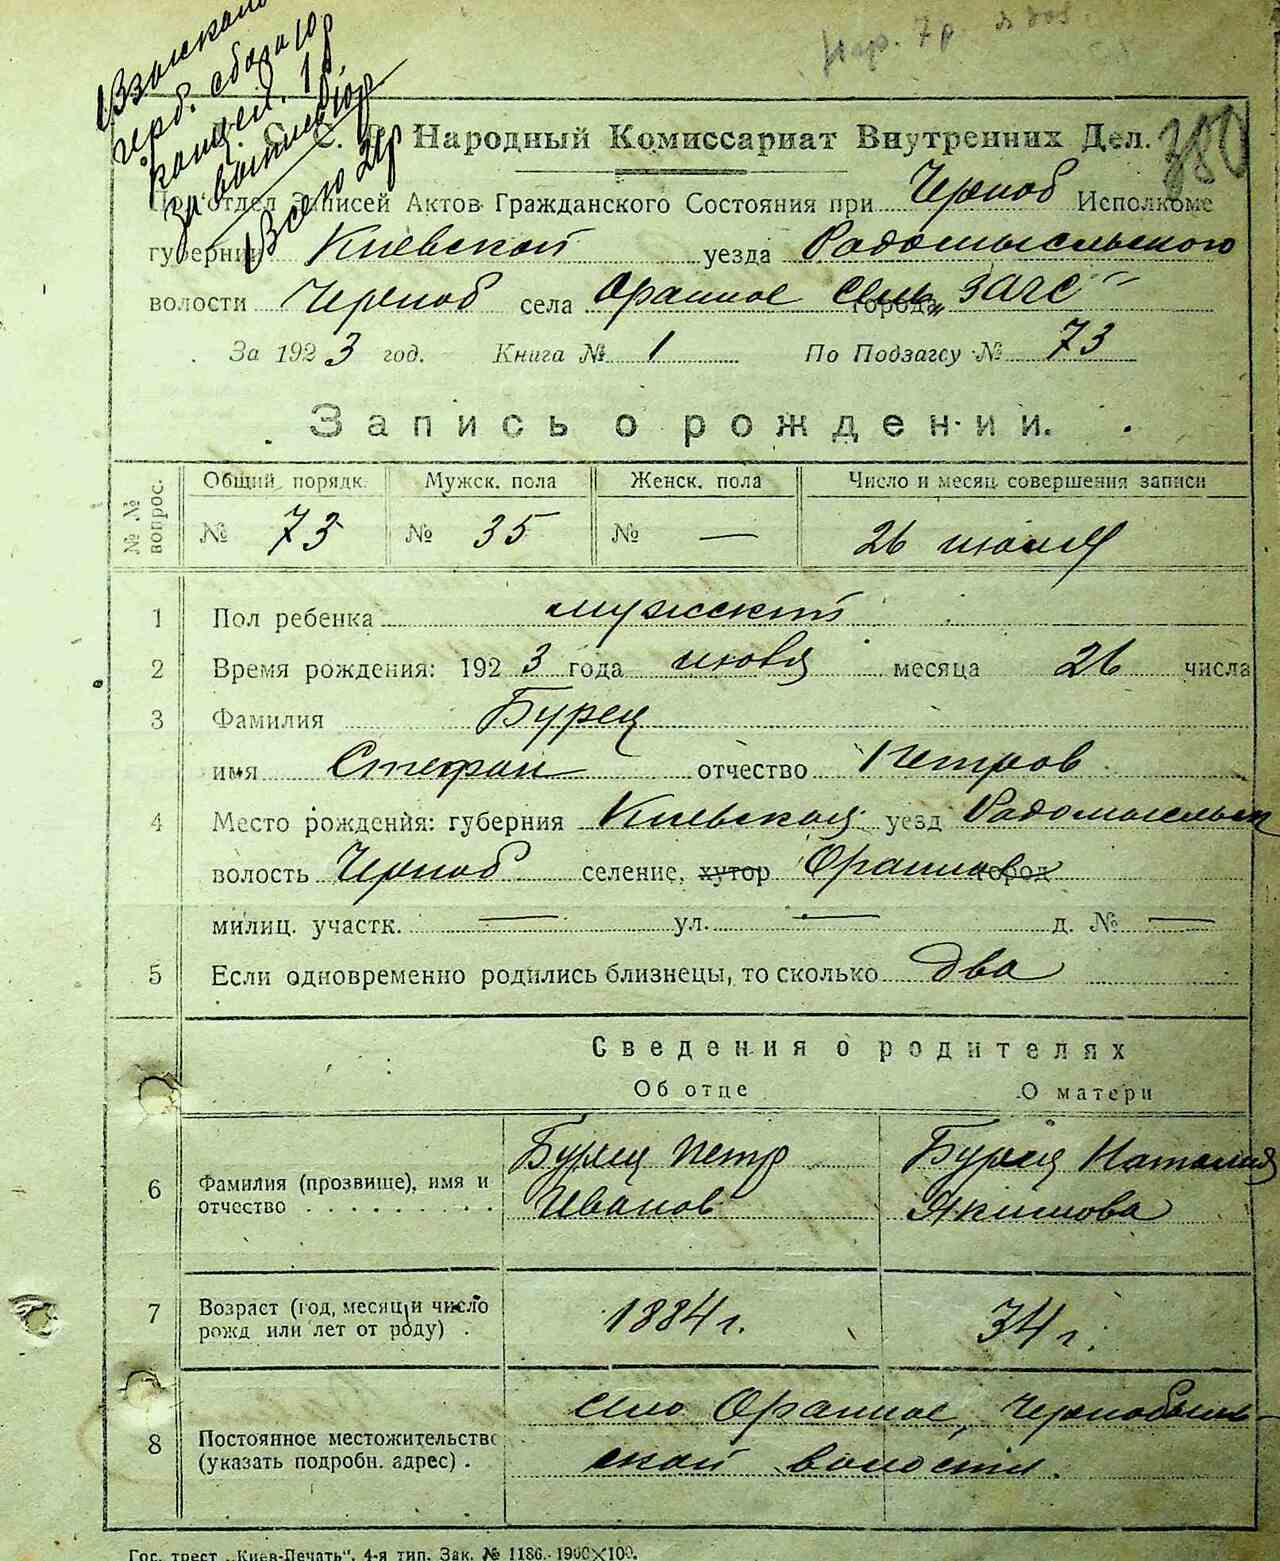 Взыскано
герб. сбора 10р
канцел. 1р
за бытие 10р
Всего 21р
Нар. 7 р.
380
С. Р. Народный Комиссариат Внутренних Дел.
Под'отдел Записей Актов Гражданского Состояния при Черноб Исполкоме
губернии Киевской уезда Радомысльского
волости Черноб села Оранное города Сель „ЗАГС"
За 1923 год. Книга № 1 По Подзагсу № 73
Запись о рождении.
№ № вопрос. Общий порядк. Мужск. пола Женск. пола Число и месяц совершения записи
№ 73 № 35 № — 26 июля
1 Пол ребенка мужский
2 Время рождения: 1923 года июля месяца 26 числа
3 Фамилия Бурец
имя Стефан отчество Петров
4 Место рождения: губерния Киевская уезд Радомысльск
волость Черноб селение, хутор город Оранное
милиц. участк. — ул. — д. № —
5 Если одновременно родились близнецы, то сколько два
Сведения о родителях
Об отце О матери
Бурец Петр Бурец Наталия
6 Фамилия (прозвище), имя и
отчество . . . . . . . . . . Иванов Якимова
7 Возраст (год, месяц и число
рожд или лет от роду) . 1884 г. 34 г.
село Оранное, Чернобыль-
8 Постоянное местожительство
(указать подробн. адрес) . ской волости.
Гос. трест „Киев-Печать", 4-я тип. Зак. № 1186.-1900×100.